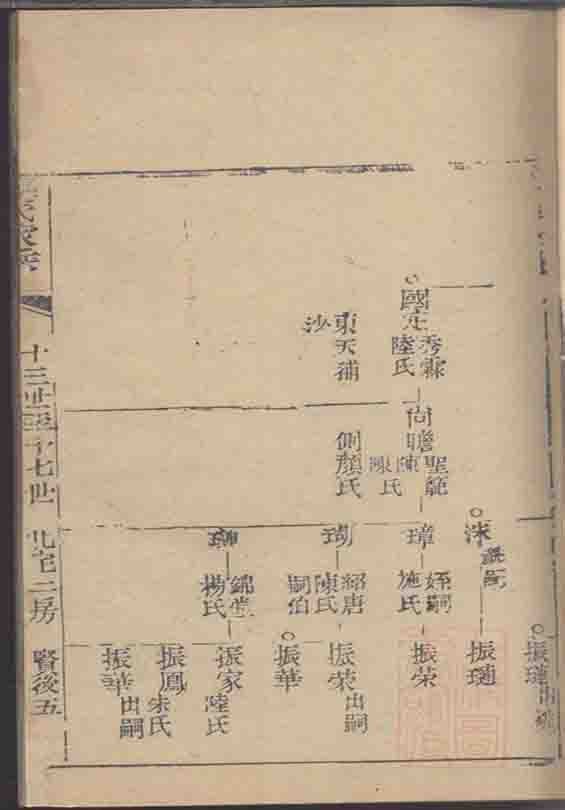 國定
秀霖
陸氏
東天補
沙
尚瞻
聖範
陳
陳氏
側顏氏
洙
璋
姪嗣
施氏
珣
紹唐
陳氏
嗣伯
錦堂
楊氏
振璉
振璉
振榮
振荣
出嗣
振華
振家
陸氏
振鳳
朱氏
振華
出嗣
十三世至十七世 北宅二房 賢後五